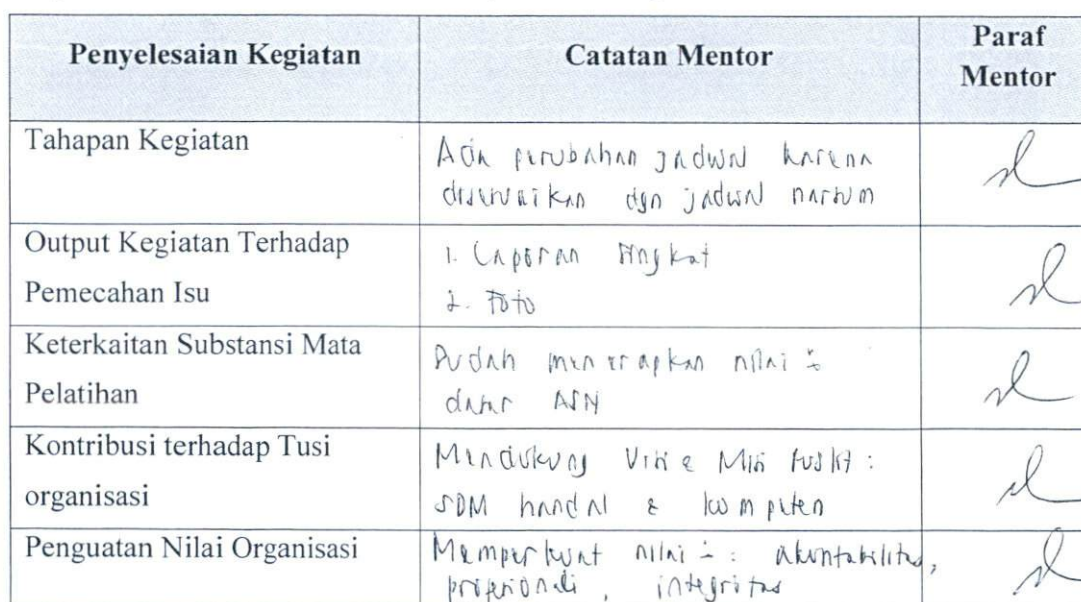 Penyelesaian Kegiatan
Catatan Mentor
Paraf
Mentor
Tahapan Kegiatan
Ada perubahan jadwal karena
disesuaikan dgn jadwal narsum
Output Kegiatan Terhadap
Pemecahan Isu
1. Laporan singkat
2. Foto
Keterkaitan Substansi Mata
Pelatihan
Sudah menerapkan nilai
dasar ASN
Kontribusi terhadap Tusi
organisasi
Mendukung Visi & Misi :
SDM handal & kompeten
Penguatan Nilai Organisasi
Memperkuat nilai : akuntabilitas,
profesionali, integritas